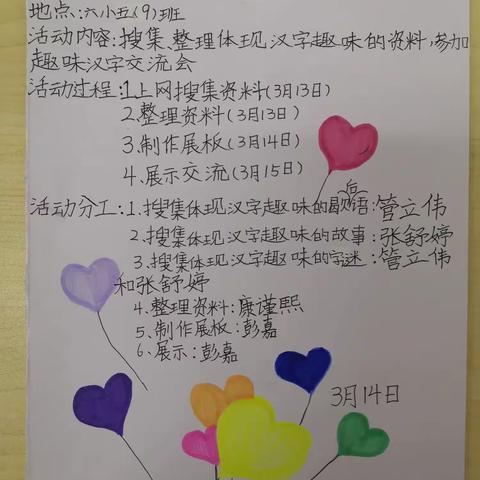 地点:六小五(9)班
活动内容:搜集、整理体现汉字趣味的资料,参加
趣味汉字交流会
活动过程:1.上网搜集资料(3月13日)
2.整理资料(3月13日)
3.制作展板(3月14日)
4.展示交流(3月15日)
活动分工:1.搜集体现汉字趣味的歇后语:管立伟
2.搜集体现汉字趣味的故事:张舒婷
3.搜集体现汉字趣味的字迷:管立伟
和张舒婷
4.整理资料:康谨熙
5.制作展板:彭嘉
6.展示:彭嘉
3月14日